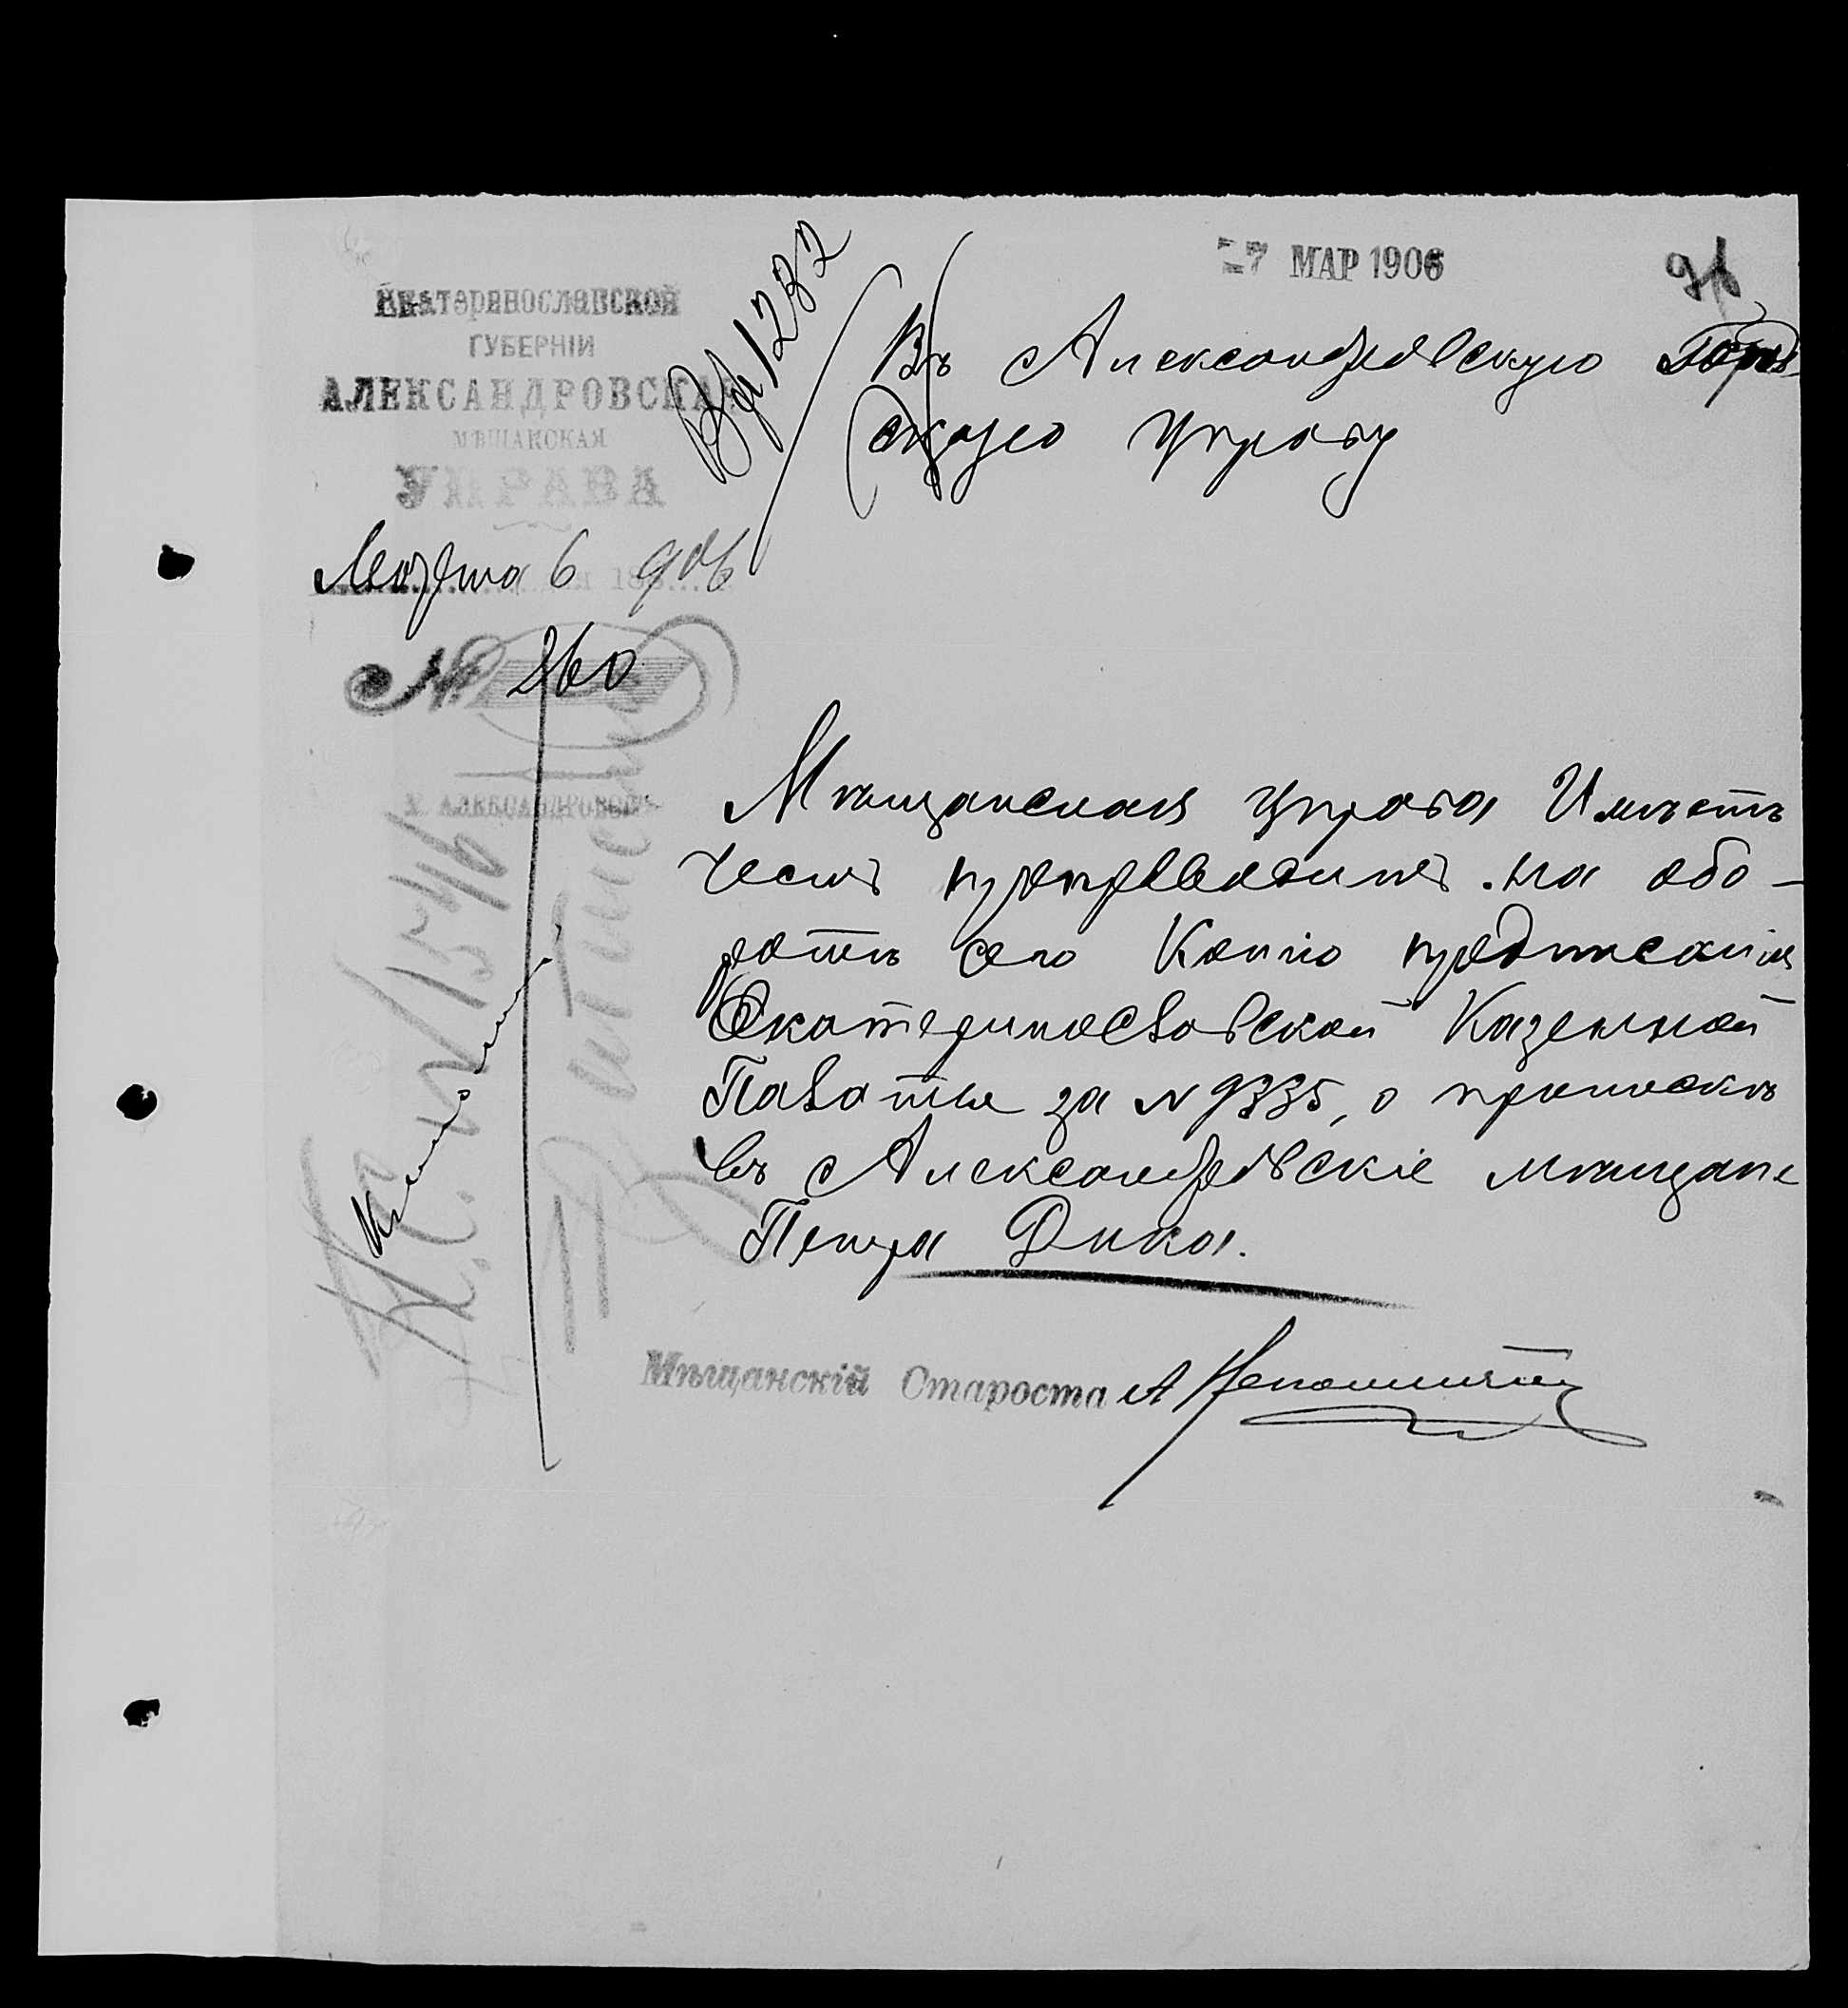 7 МАР 1906
Екатеринославской
ГУБЕРНІИ
АЛЕКСАНДРОВСКАЯ
МѢЩАНСКАЯ
УПРАВА
Марта 6 906
№ 260
Г. АЛЕКСАНДРОВСКЪ
Вх 1232
Въ Александровскую Город-
скую Управу
Мѣщанская управа Имѣетъ
честь препроводить на обо-
ротѣ сего Копію предписанія
Екатеринославской Казенной
Палаты за N 9335, о припискѣ
въ Александровскіе мѣщане
Петра Дика.
Мѣщанскій Староста А